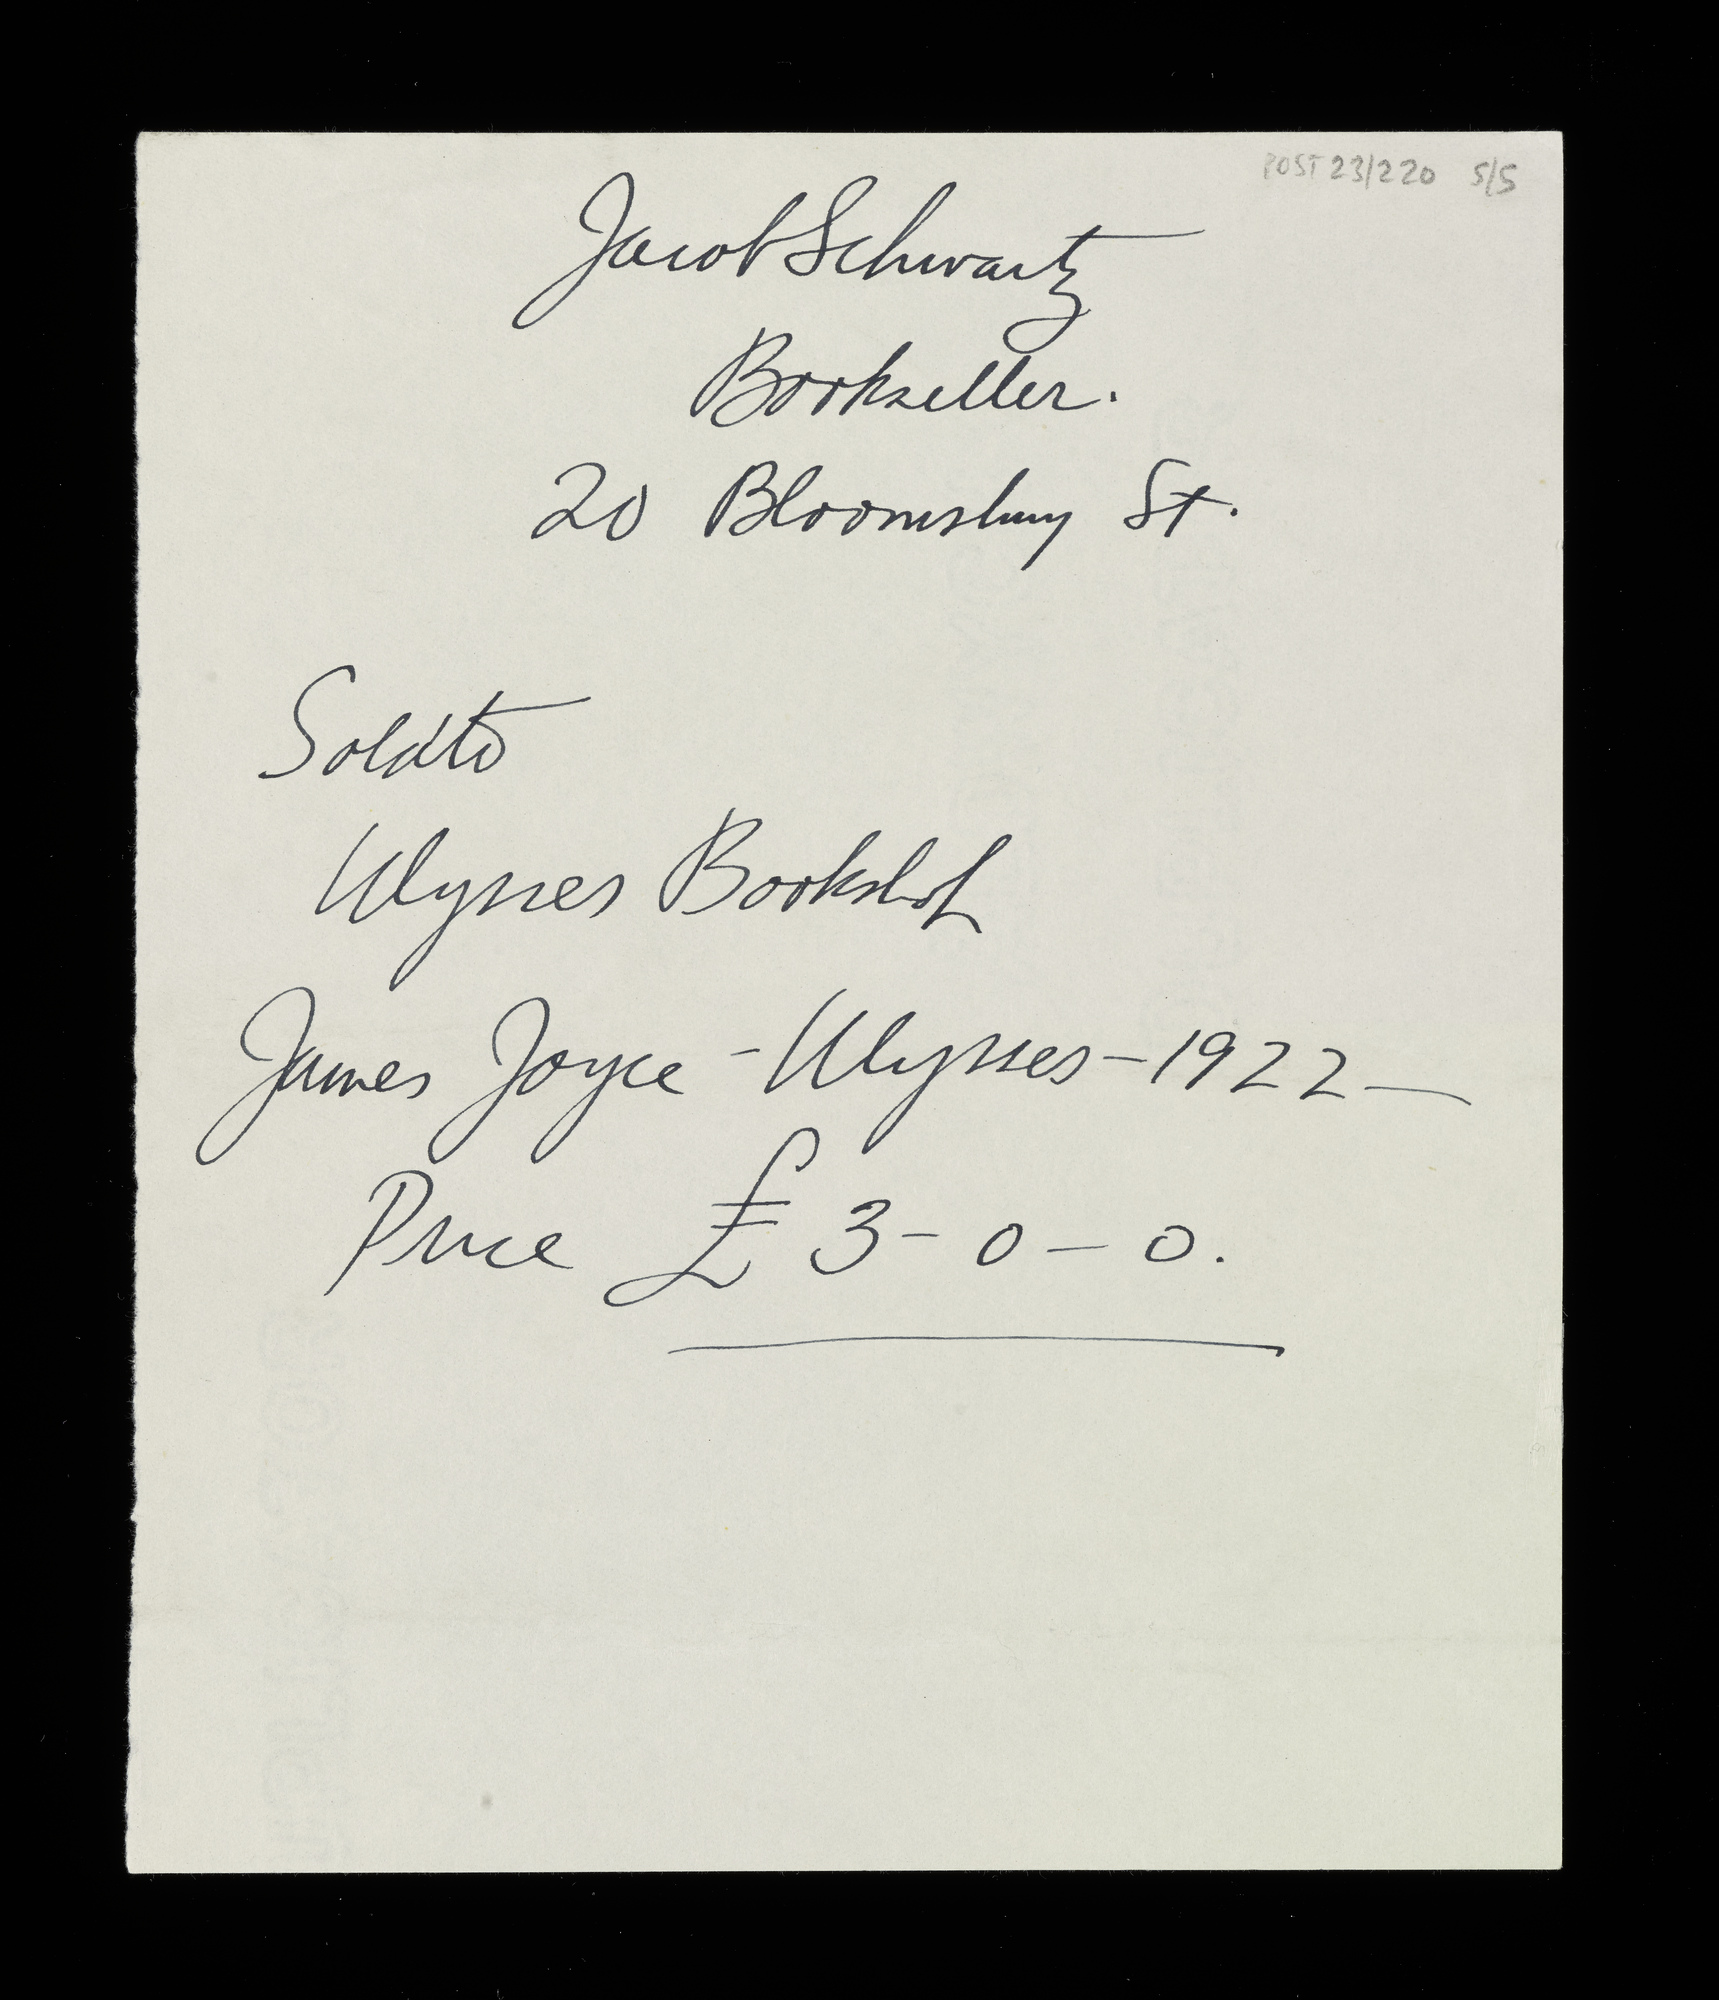 POST 23/220 5/5
Jacob Schwartz
Bookseller.
20 Bloomsbury St.
Sold to
Ulysses Bookshop
James Joyce - Ulysses - 1922 —
Price £ 3 - 0 - 0.